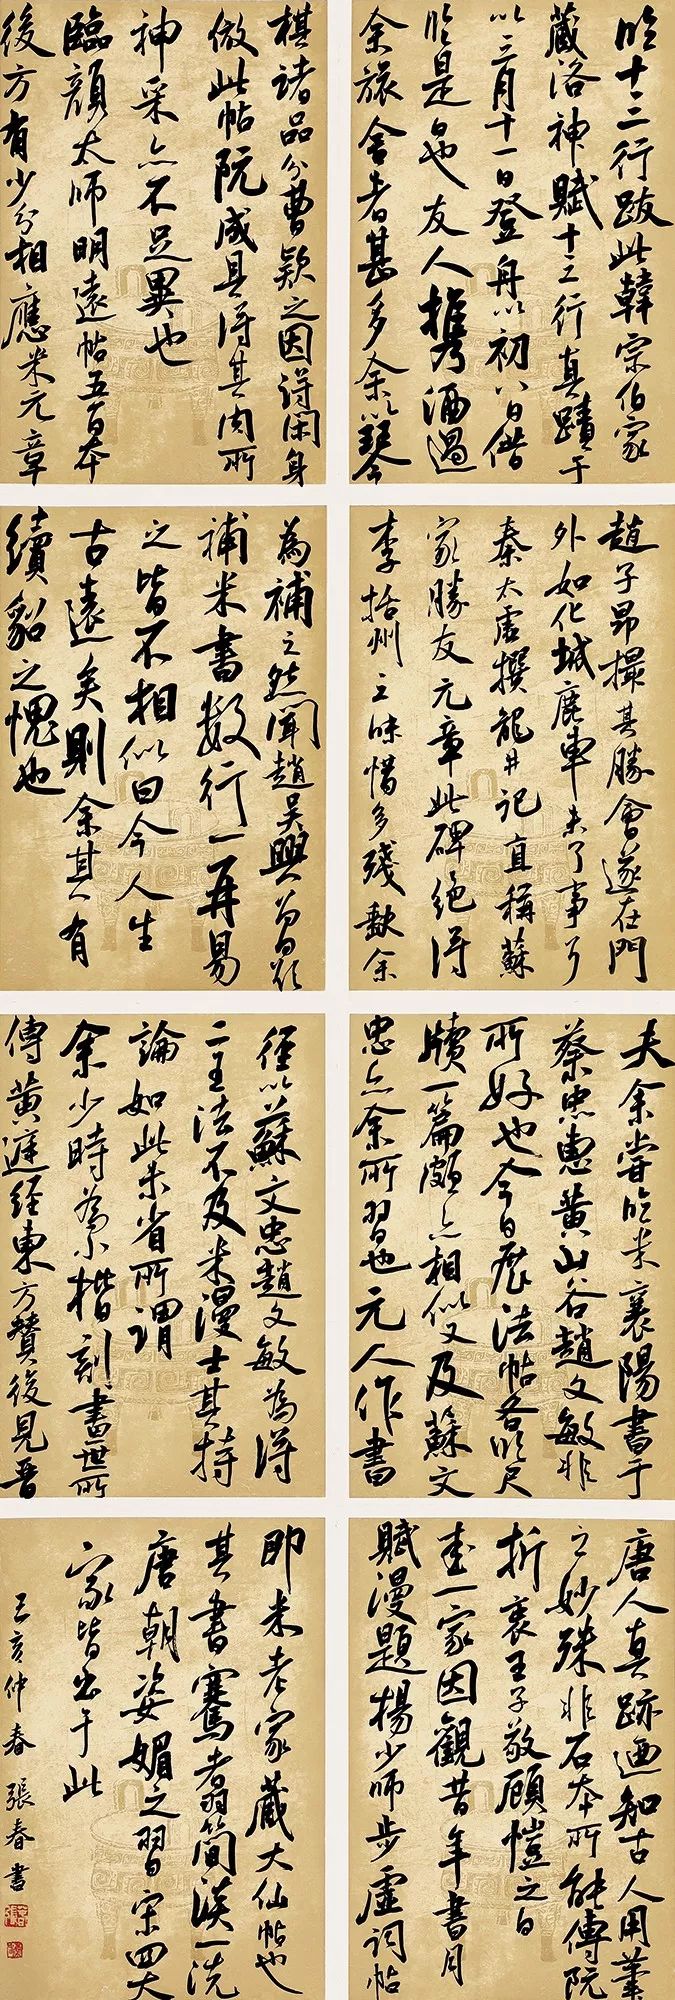 臨十三行跋此韓宗伯家
藏洛神賦十三行真蹟于
以三月十一日登舟以初八日借
臨是日也友人攜酒過
余旅舍者甚多余以琴
棋諸品分曹款之因得閑身
倣此帖既成具得其肉所
神采亦不足異也
臨顏太師明遠帖五百本
後方有少分相應米元章
趙子昂撮其勝會遂在門
外如化城鹿車未了事耳
秦太虛撰龍井記直稱蘇
家勝友元章此碑絕得
李括州三昧惜多殘缺余
為補之然聞趙吳興曾欲
補米書數行一再易
之皆不相似曰今人生
古遠矣則余其有
續貂之愧也
夫余嘗臨米襄陽書于
蔡忠惠黃山谷趙文敏非
所好也今日展法帖各臨尺
牘一篇頗亦相似又及蘇文
忠亦余所習也元人作書
經以蘇文忠趙文敏為得
二王法不及米漫士其持
論如此未省所謂
余少時為小楷刻畫世所
傳黃庭經東方贊後見晉
唐人真跡迺知古人用筆
之妙殊非石本所能傳既
折衷王子敬顧愷之自
成一家因觀昔年書月
賦漫題楊少師步虛詞帖
即米老家藏大仙帖也
其書騫翥簡淡一洗
唐朝姿媚之習宋四大
家皆出于此
己亥仲春張春書